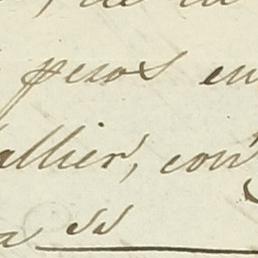 pesos en
allier, con
a ss